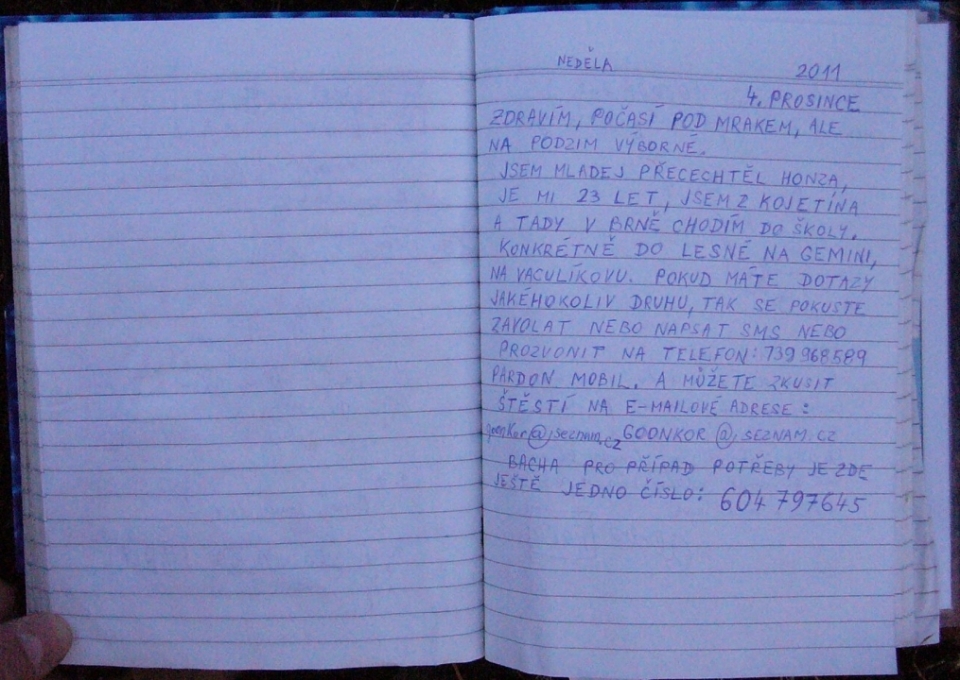 NEDĚLA 2011
4. PROSINCE
ZDRAVÍM, POČASÍ POD MRAKEM, ALE
NA PODZIM VÝBORNÉ.
JSEM MLADEJ PŘECECHTĚL HONZA,
JE MI 23 LET, JSEM Z KOJETÍNA
A TADY V BRNĚ CHODÍM DO ŠKOLY.
KONKRÉTNĚ DO LESNÉ NA GEMINI,
NA VACULÍKOVU. POKUD MÁTE DOTAZY
JAKÉHOKOLIV DRUHU, TAK SE POKUSTE
ZAVOLAT NEBO NAPSAT SMS NEBO
PROZVONIT NA TELEFON: 739 968 589
PARDON MOBIL. A MŮŽETE ZKUSIT
ŠTĚSTÍ NA E-MAILOVÉ ADRESE:
goonkor@seznam.cz GOONKOR @ SEZNAM.CZ
BACHA PRO PŘÍPAD POTŘEBY JE ZDE
JEŠTĚ JEDNO ČÍSLO: 604 797645